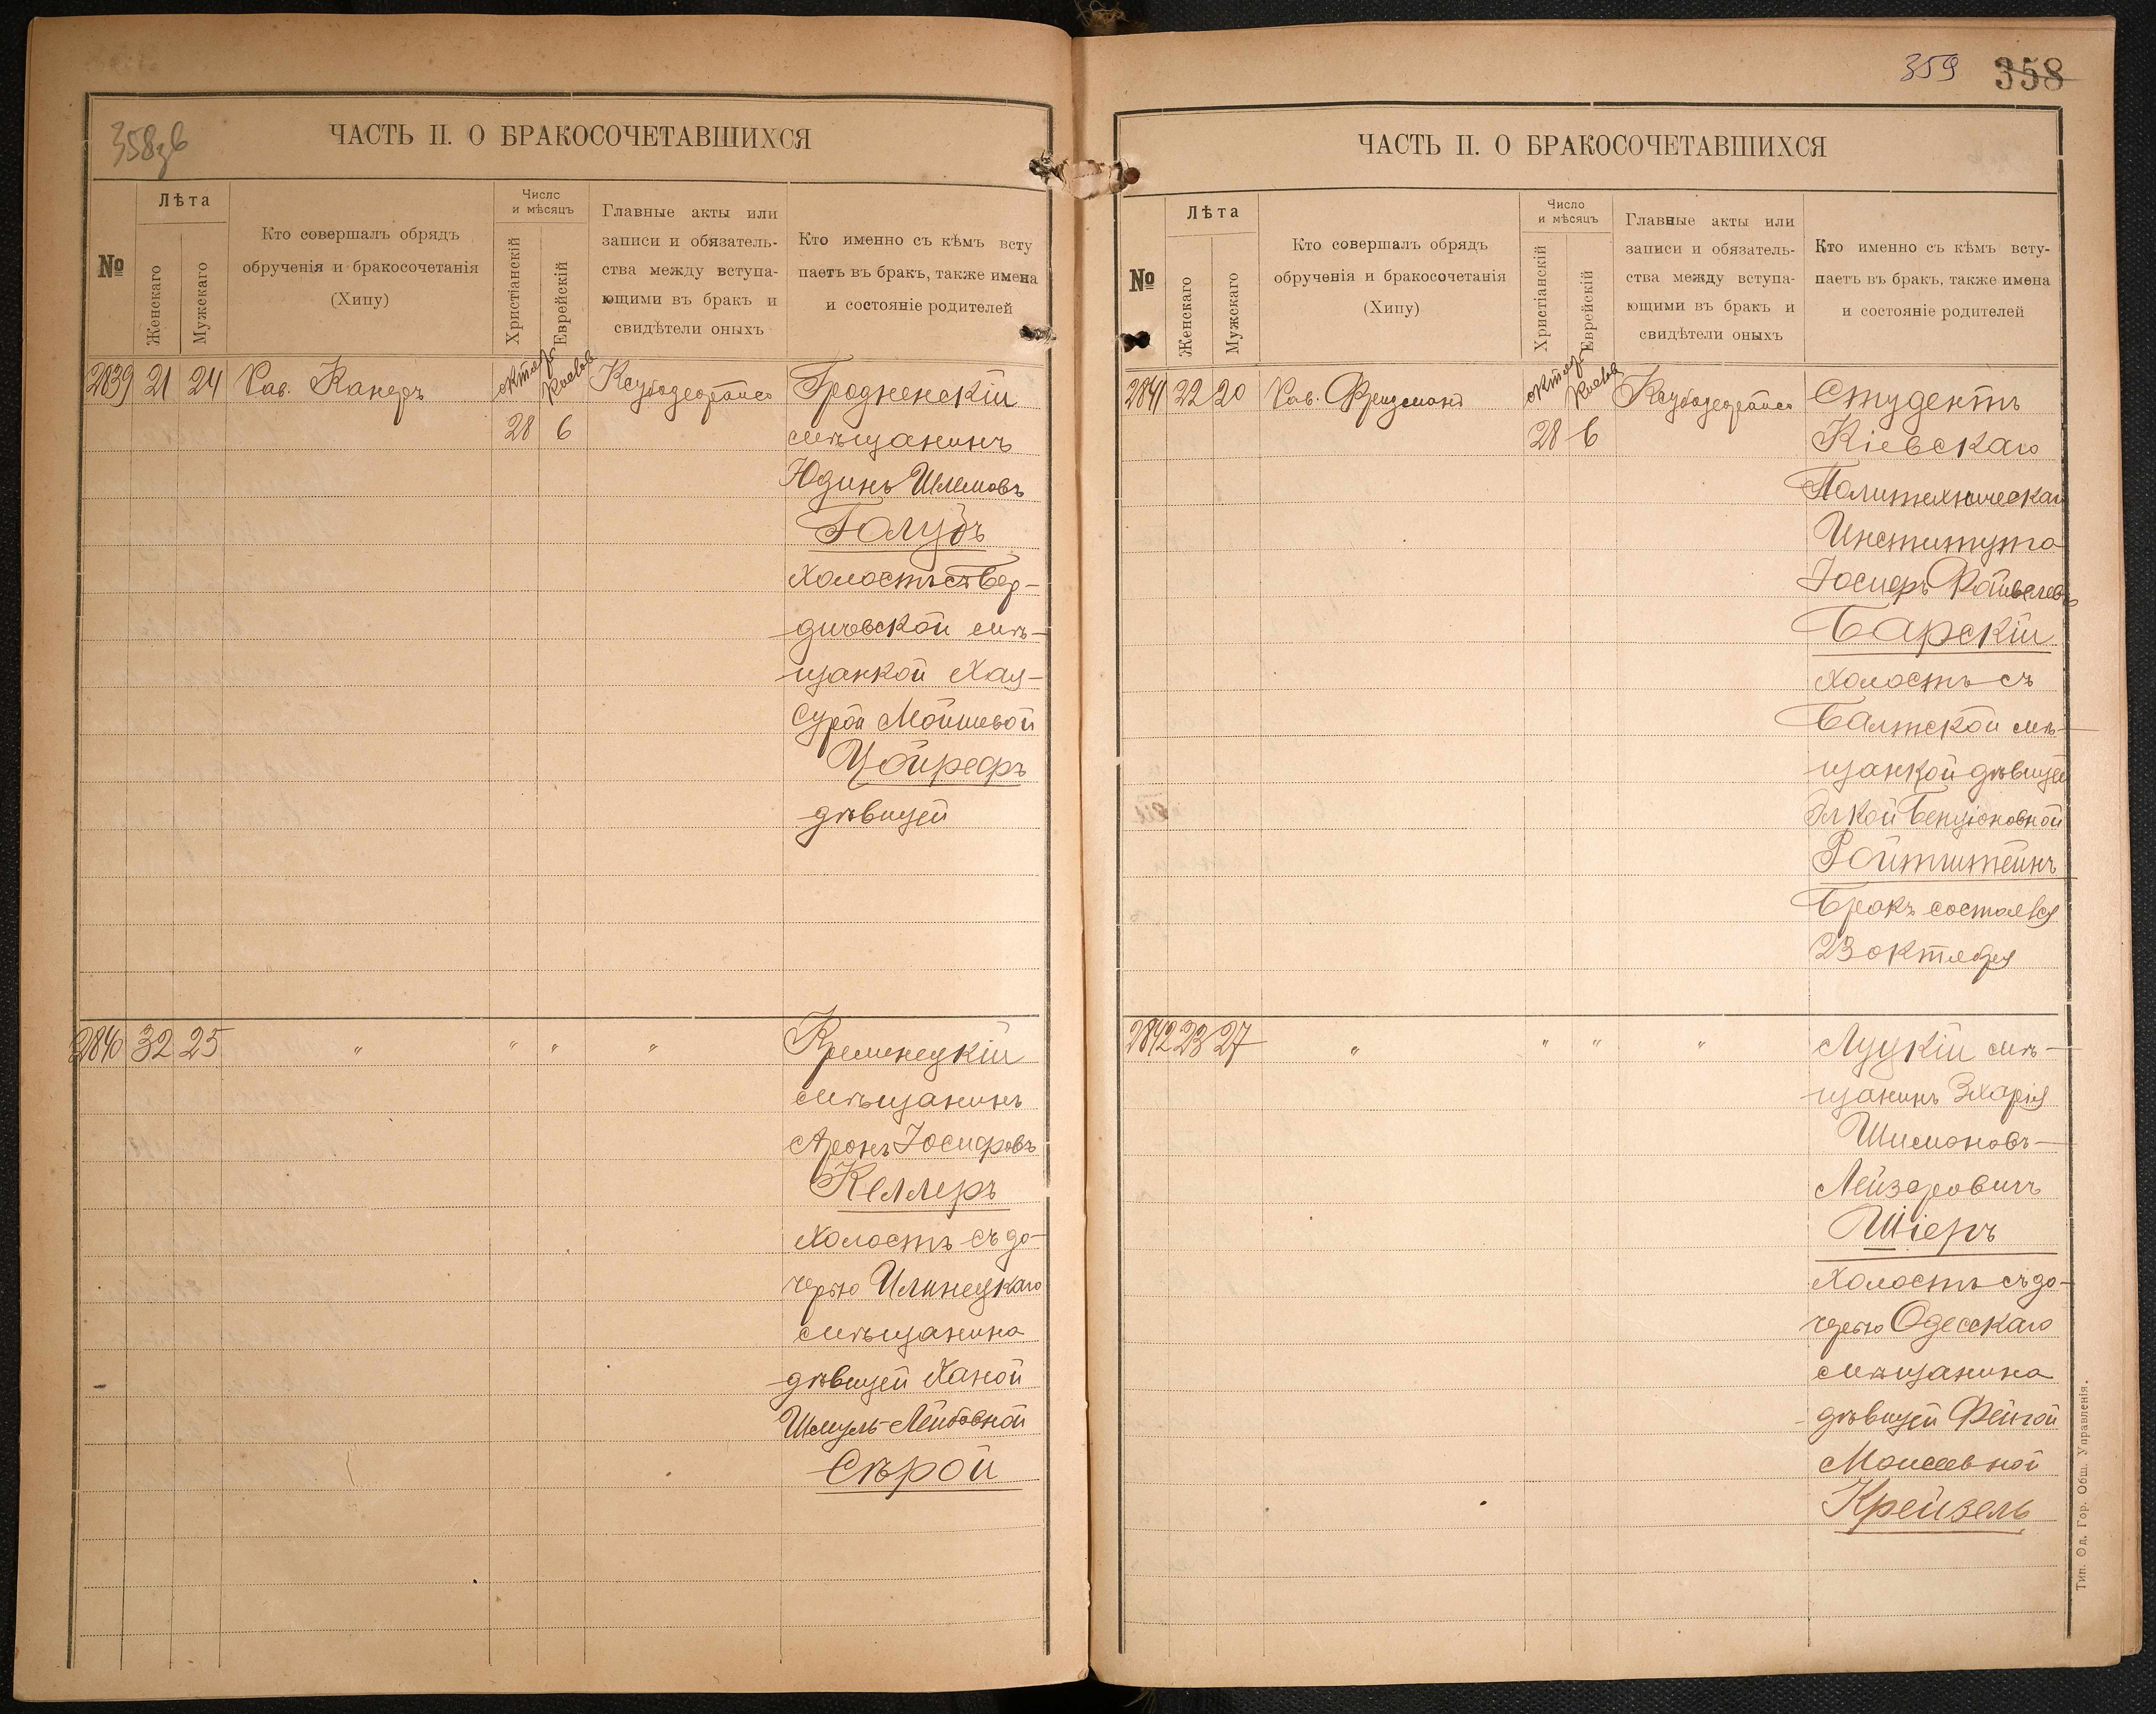 358зв
ЧАСТЬ II. О БРАКОСОЧЕТАВШИХСЯ
№
Лѣта
Женскаго
Мужскаго
Кто совершалъ обрядъ
обрученія и бракосочетанія
(Хипу)
Число
и мѣсяцъ
Христіанскій
Еврейскій
Главные акты или
записи и обязатель-
ства между вступа-
ющими въ бракъ и
свидѣтели оныхъ
Кто именно съ кѣмъ всту
паетъ въ бракъ, также имена
и состояніе родителей
2839 21 24 Рав. Канеръ
28 6
Гродненскій
мѣщанинъ
Юдинъ Шлемовъ
Голубъ
холостъ съ Бер-
дичевской мѣ-
щанкой Хая-
Сурой Мошковой
Цойрефъ
дѣвицей
2840 32 25 " " " "
Кременецкій
мѣщанинъ
Аронъ Іосифовъ
Келлеръ
холостъ съ до-
черью Илинецкаго
мѣщанина
дѣвицей Ханой
Шмуль-Лейбовной
Сѣрой
359 358
ЧАСТЬ II. О БРАКОСОЧЕТАВШИХСЯ
№
Лѣта
Женскаго
Мужскаго
Кто совершалъ обрядъ
обрученія и бракосочетанія
(Хипу)
Число
и мѣсяцъ
Христіанскій
Еврейскій
Главные акты или
записи и обязатель-
ства между вступа-
ющими въ бракъ и
свидѣтели оныхъ
Кто именно съ кѣмъ всту-
паетъ въ бракъ, также имена
и состояніе родителей
2841 22 20 Рав. Фридманъ
28 6
Студентъ
Кіевскаго
Политехническаго
Института
Іосифъ Файвелевъ
Барскій
холостъ съ
Балтской мѣ-
щанкой дѣвицей
Элкой Бенціоновной
Ройтштейнъ
Бракъ состоялся
23 октября
2842 23 27 " " " "
Луцкій мѣ-
щанинъ Зхарія
Шимоновъ-
Лейзеровичъ
Шіеръ
холостъ съ до-
черью Одесскаго
мѣщанина
дѣвицей Фейгой
Моисеевной
Крейзель
Тип. Од. Гор. Общ. Управленія.